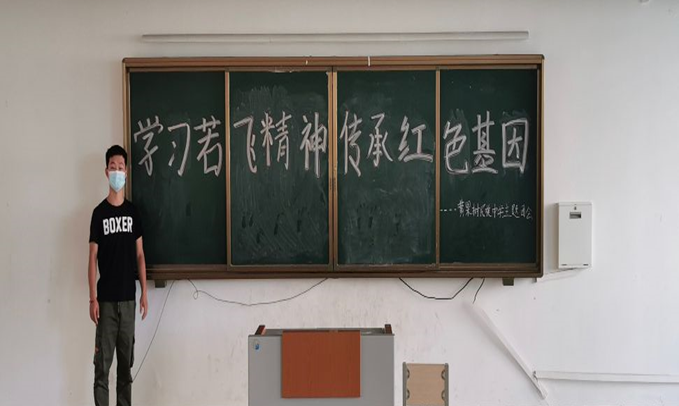 学习若飞精神传承红色基因
黄果树民族中学主题班会
BOXER